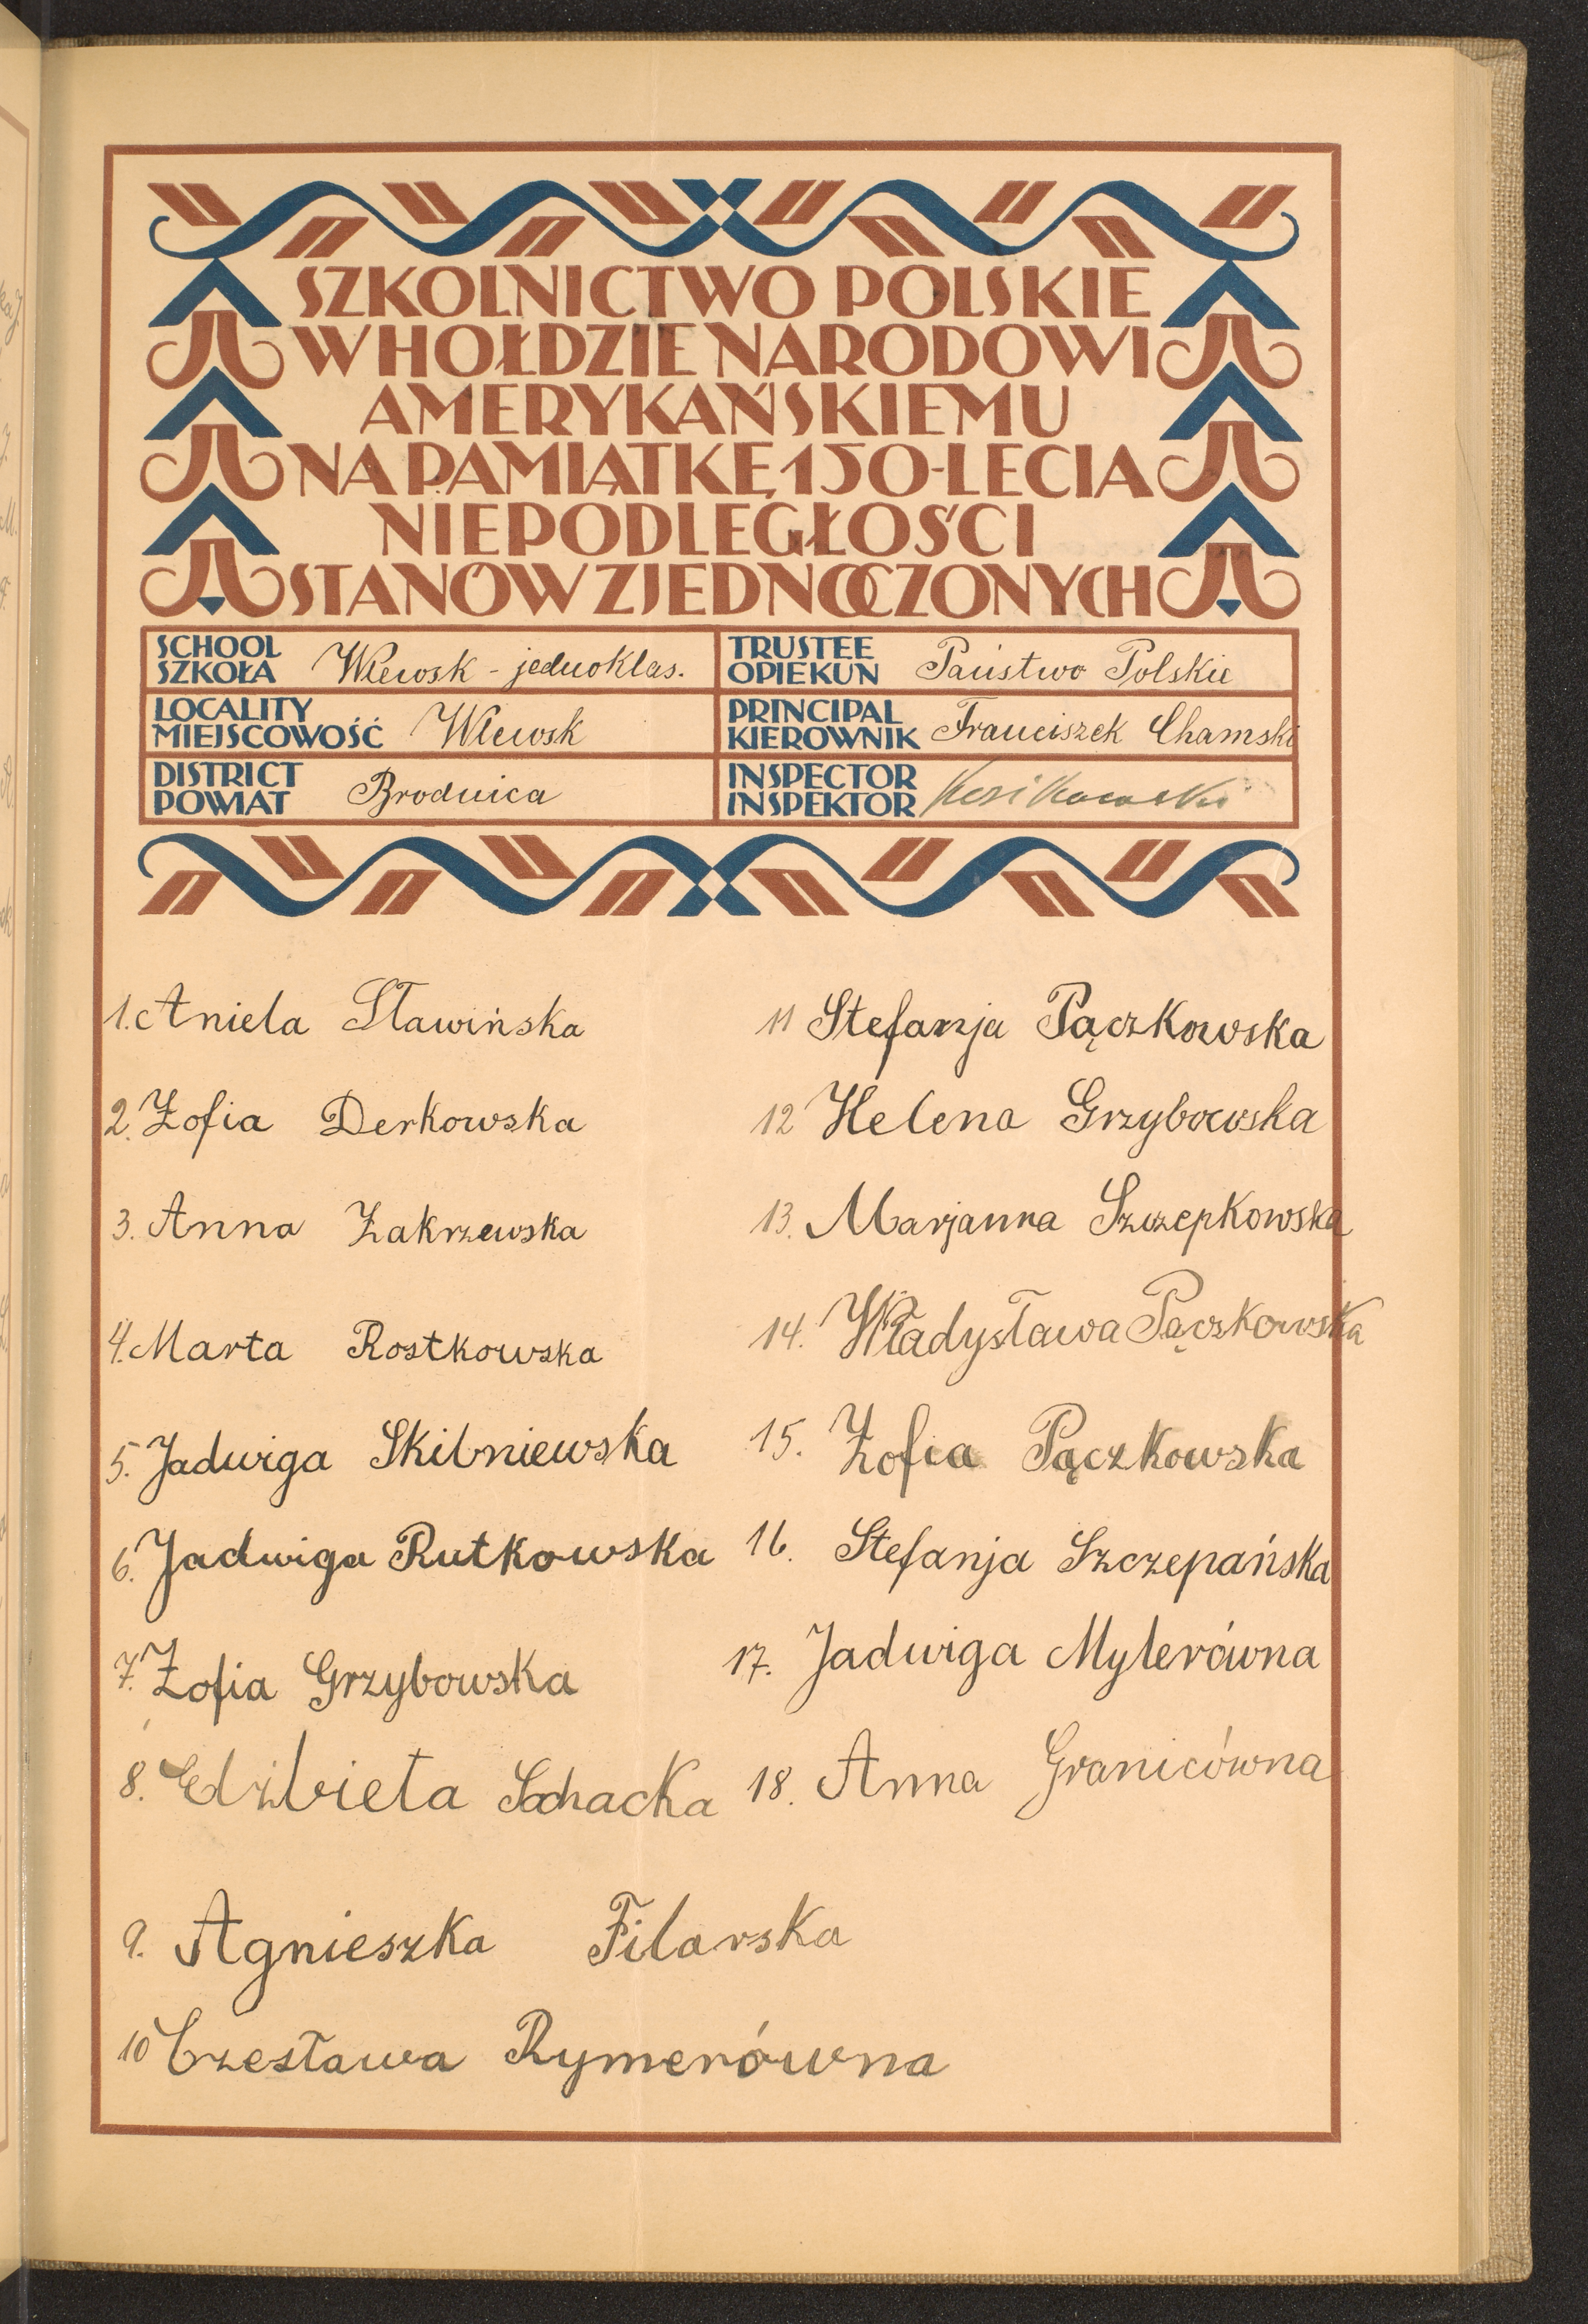 SZKOLNICTWO POLSKIE
W HOŁDZIE NARODOWI
AMERYKAŃSKIEMU
NA PAMIĄTKĘ 150-LECIA
NIEPODLEGŁOŚCI
STANÓW ZJEDNOCZONYCH
SCHOOL
SZKOŁA Wlewsk - jednoklas.
TRUSTEE
OPIEKUN Państwo Polskie
LOCALITY
MIEJSCOWOŚĆ Wlewsk
PRINCIPAL
KIEROWNIK Franciszek Chamski
DISTRICT
POWIAT Brodnica
INSPECTOR
INSPEKTOR
1. Aniela Sławińska
2. Zofia Derkowska
3. Anna Zakrzewska
4. Marta Rostkowska
5. Jadwiga Skibniewska
6. Jadwiga Rutkowska
7. Zofia Grzybowska
8. Elżbieta Sochacka
9. Agnieszka Filarska
10 Czesława Rymerówna
11 Stefanja Pączkowska
12 Helena Grzybowska
13. Marjanna Szczepkowska
14. Władysława Pączkowska
15. Zofia Pączkowska
16. Stefanja Szczepańska
17. Jadwiga Mylerówna
18. Anna Granicówna